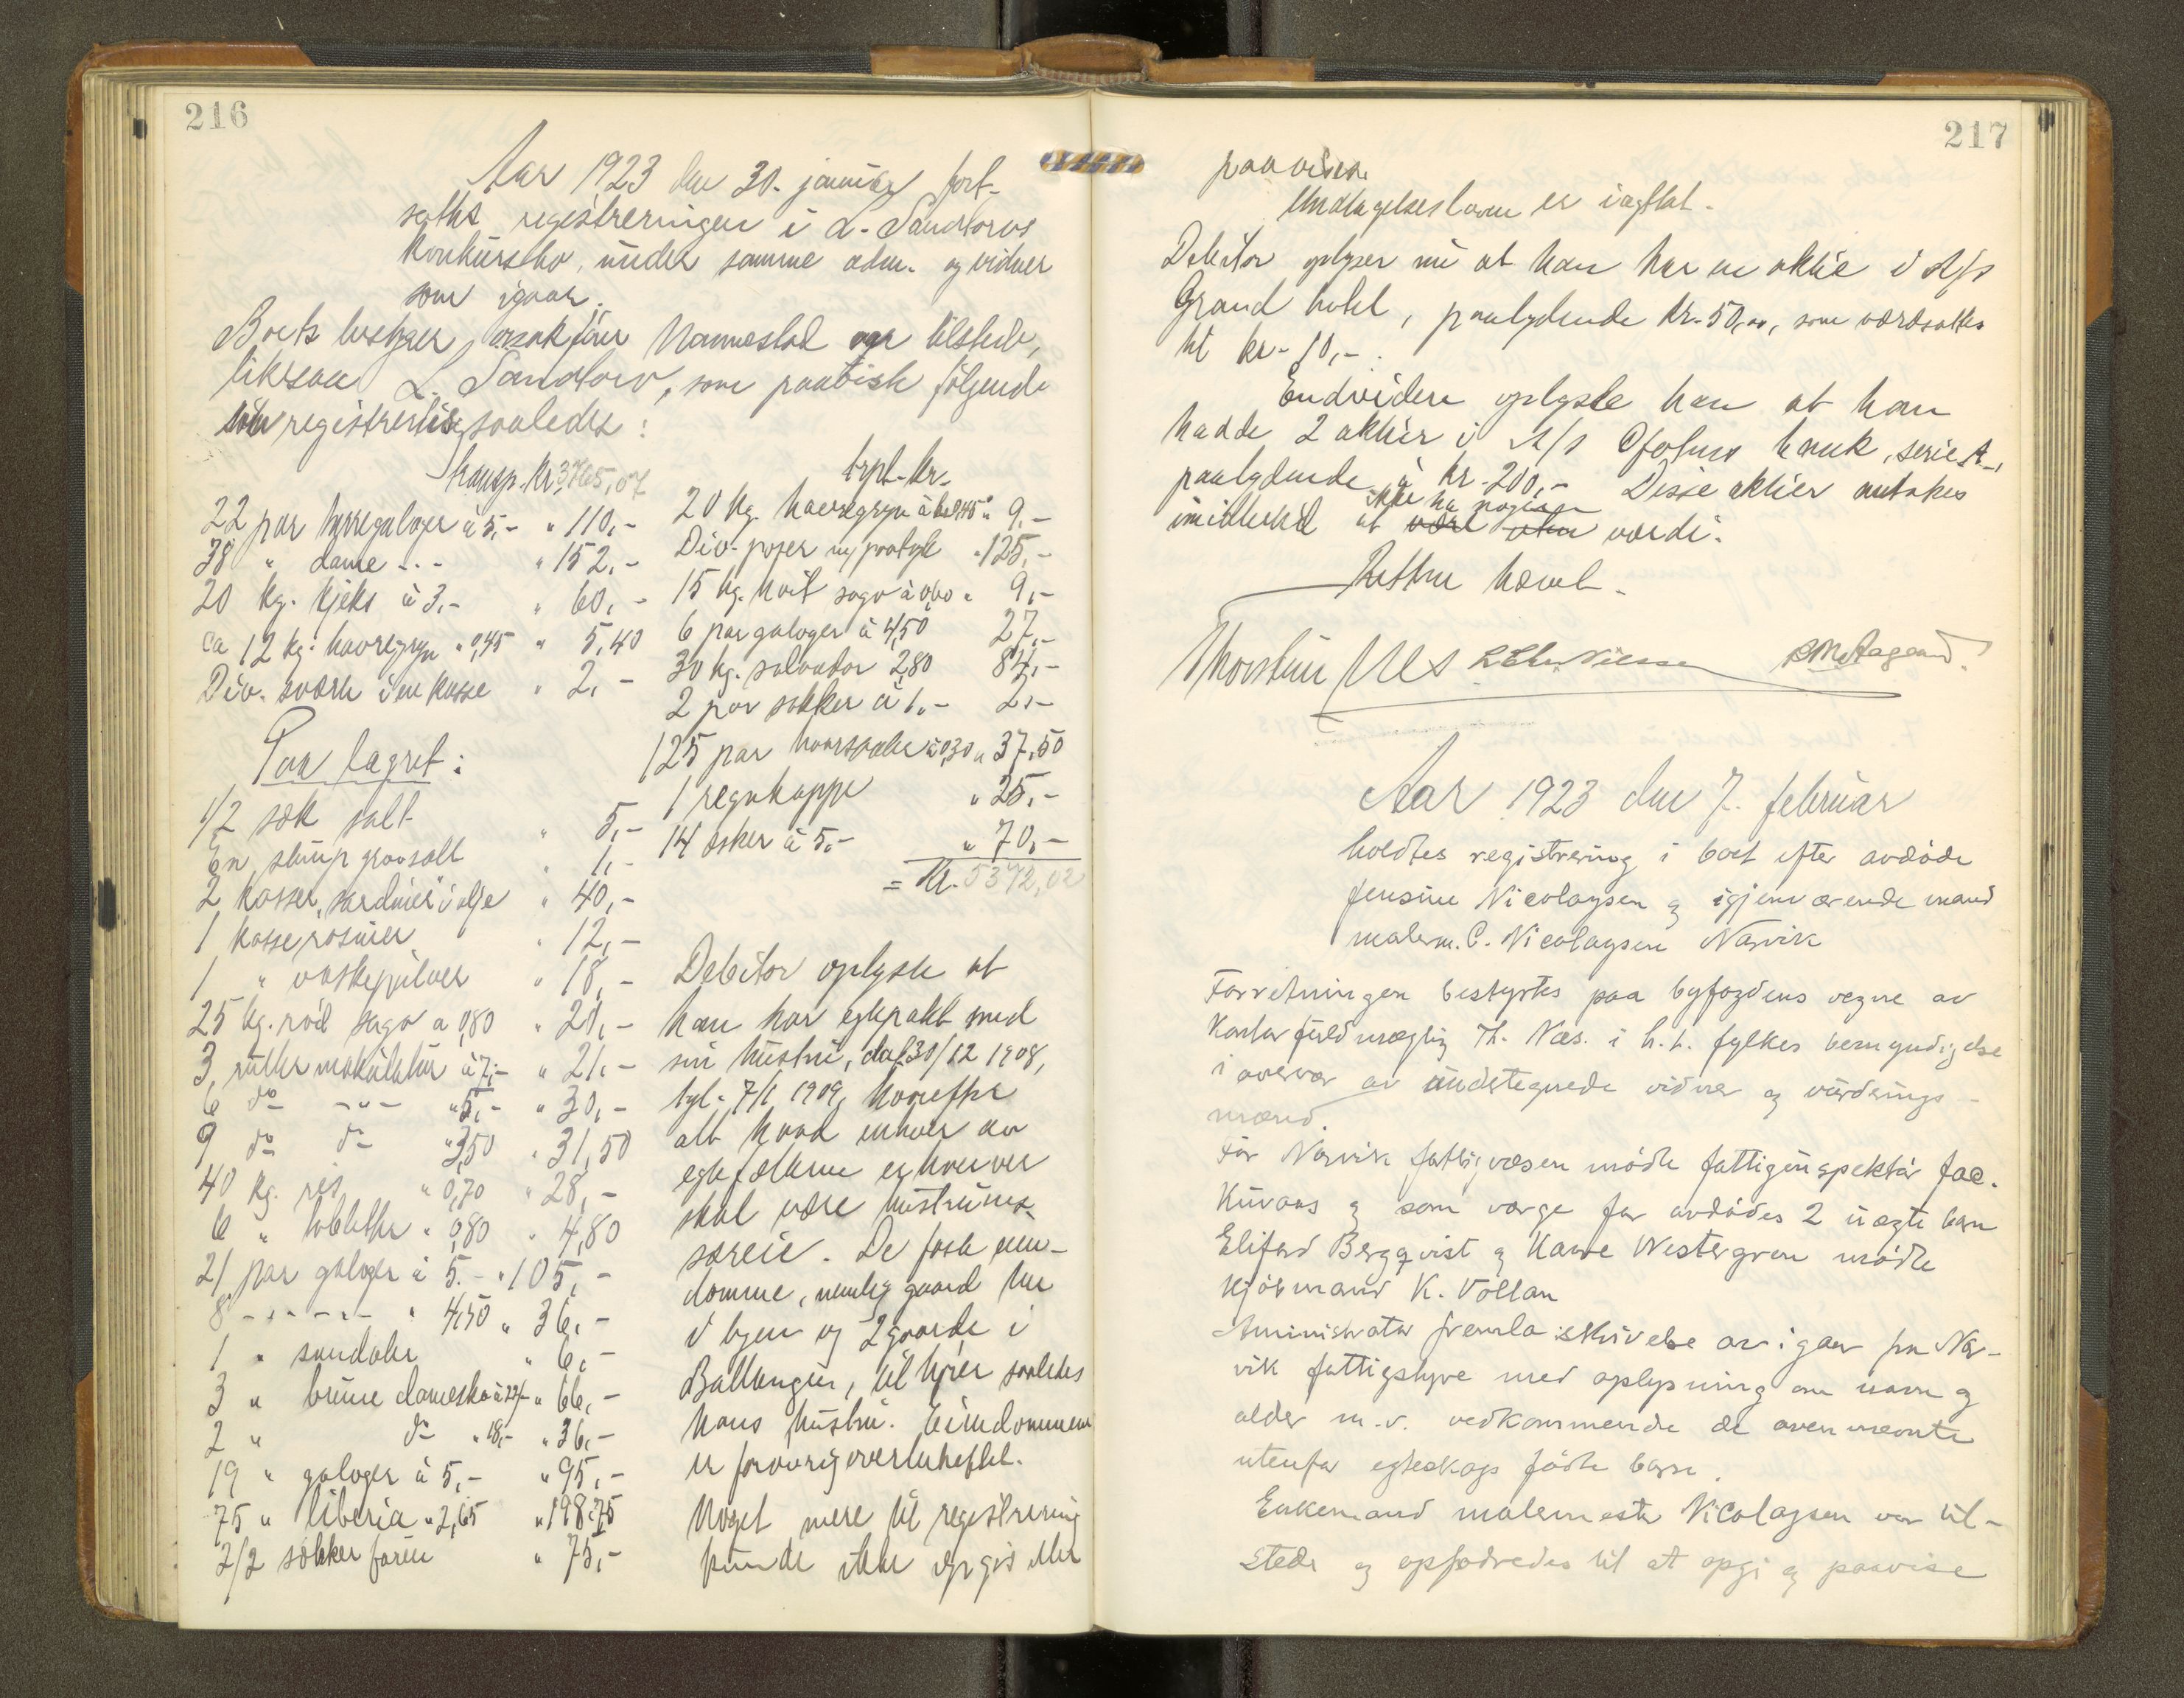 216
Aar 1923 den 30. januar fort-
sattes registreringen i L. Sandtorvs
konkursbo, under samme adm. og vidner
som igaar.
Boets bestyrer, sakfører Nannestad var tilstede,
likesaa L. Sandtorv, som paaviste følgende
som registrertes saaledes:
Transp. kr. 3765,07
22 par herregaloger à 5,- " 110,-
38 " dame - - - " 152,-
20 kg. kjeks à 3,- " 60,-
ca 12 kg. havregryn " 0,45 " 5,40
Div. sværte i en kasse " 2,-
Paa lagret:
1/2 sæk salt " 5,-
En slump grovsalt " 1,-
2 kasser "sardiner" i olje " 40,-
1 kasse rosiner " 12,-
1 " vaskepulver " 18,-
25 kg. rød sago a 0,80 " 20,-
3 ruller makulatur à 7,- " 21,-
6 do -"- " 5,- " 30,-
9 do do " 3,50 " 31,50
40 kg. ris " 0,70 " 28,-
6 " tobletter " 0,80 " 4,80
21 par galoger à 5.- " 105,-
8 - " - " - " 4,50 " 36,-
1 " sandaler " 6,-
3 " brune damesko à 22,- " 66,-
2 " do " 18,- " 36,-
19 " galoger à 5,- " 95,-
75 " liberia " 2,65 " 198,75
2/2 sækker farin " 75,-
trpt. kr.
20 kg. havregryn à 0,45 " 9,-
Div. poser m/ paatryk " 125,-
15 kg. hvit sago à 0,60 " 9,-
6 par galoger à 4,50 27,-
30 kg. salvador 2,80 84,-
2 par sokker à 1,- 2,-
125 par haarsaaler à 0,30 " 37,50
1 regnkappe " 25,-
14 æsker à 5,- " 70,-
= Kr. 5372,02
Debitor oplyste at
han har egtepakt med
sin hustru, dat. 30/12 1908,
tgl. 7/1 1909, hvorefter
alt hvad enhver av
egtefællerne erhverver
skal være hustruens
særeie. De faste eien-
domme, nemlig gaard her
i byen og 2 gaarde i
Ballangen, tilhører saaledes
hans hustru. Eiendommene
er forøvrig overbeheftet.
Noget mere til registrering
kunde ikke opgis eller
217
paavises.
Undtagelsesloven er iagttat.
Debitor oplyser nu at han har en aktie i A/S
Grand hotel, paalydende kr. 50,00, som værdsattes
til kr. 10,-.
Endvidere oplyste han at han
hadde 2 aktier i A/S Ofotens bank, serie A,
paalydende à kr. 200,- Disse aktier antakes
imidlertid at være uten ikke ha nogen værdi.
Retten hævet.
Thorstein Næs
Aar 1923 den 7. februar
holdtes registrering i boet efter avdøde
Jensine Nicolaysen og igjenværende mand
malerm. C. Nicolaysen Narvik
Forretningen bestyrtes paa byfogdens vegne av
kontorfuldmægtig Th. Næs. i h. t. fylkes bemyndigelse
i overvær av undertegnede vidner og vurderings-
mænd.
For Narvik fattigvæsen møtte fattiginspektør Jac.
Kuvaas og som værge for avdødes 2 uægte barn
Eliferd Bergqvist og Kaare Westergren møtte
kjøbmand K. Vollan
Aministrator fremla skrivelse av igaar fra Nar-
vik fattigstyre med oplysning om navn og
alder m.v. vedkommende de ovenmevnte
utenfor egteskap fødte barn.
Enkemand malermester Nicolaysen var til-
stede og opfordredes til at opgi og paavise